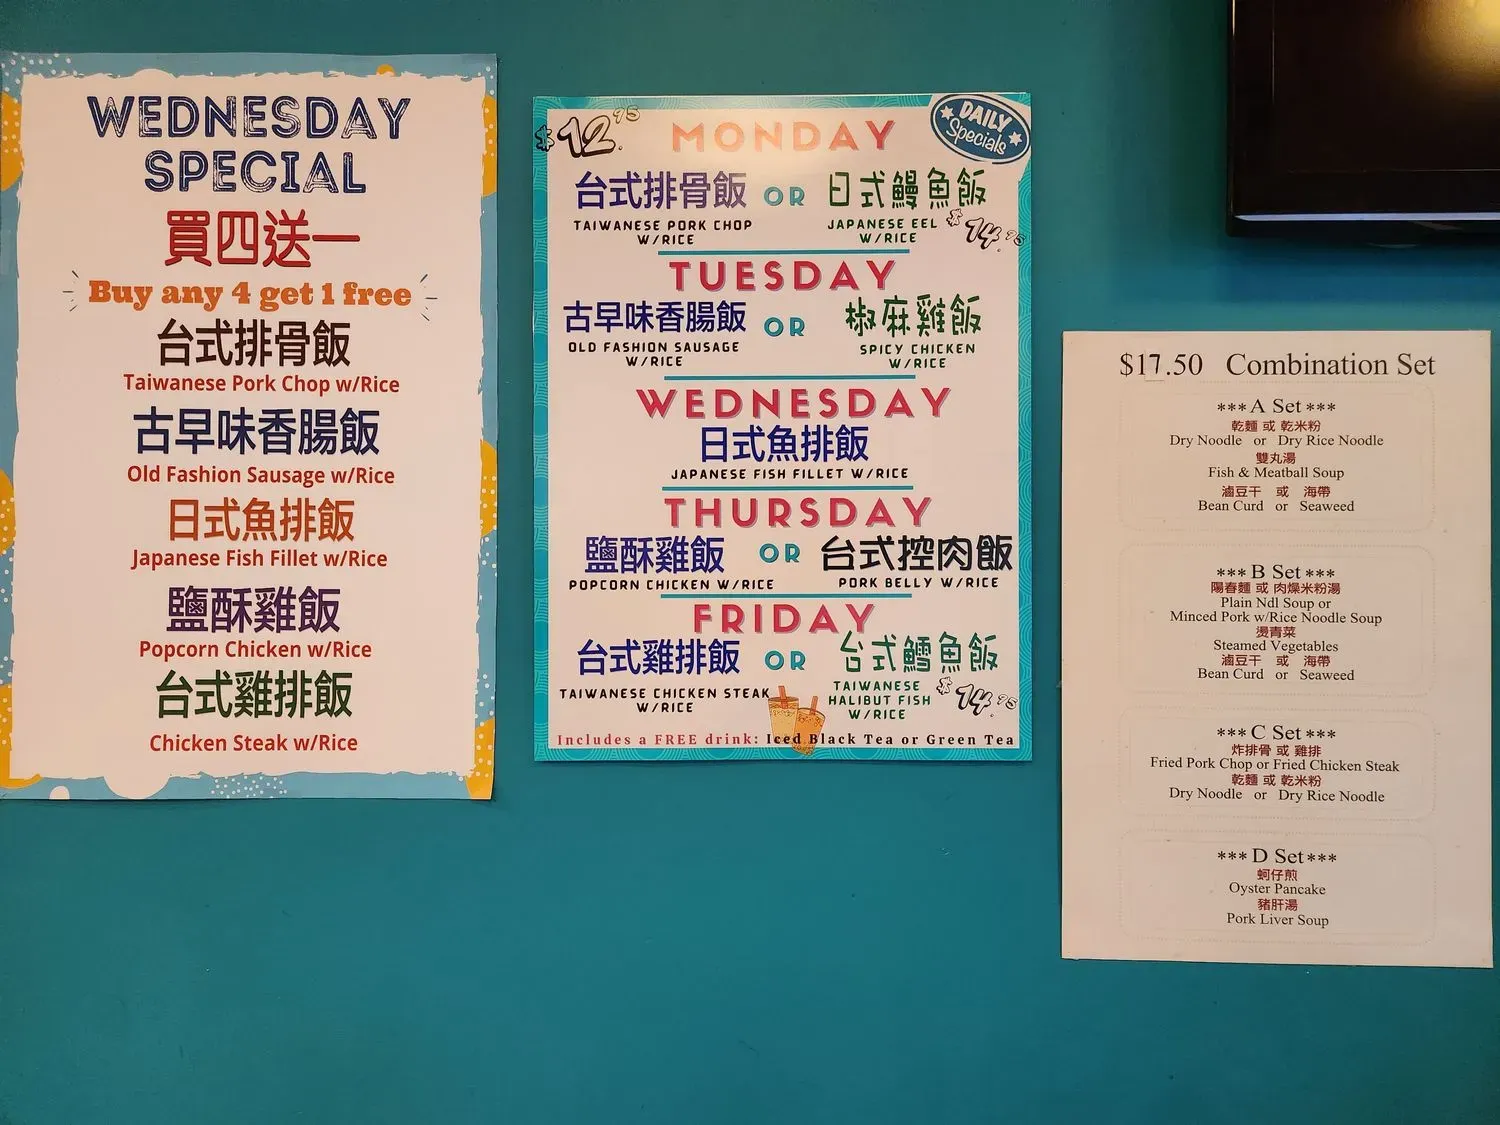 WEDNESDAY
SPECIAL
買四送一
Buy any 4 get 1 free
台式排骨飯
Taiwanese Pork Chop w/Rice
古早味香腸飯
Old Fashion Sausage w/Rice
日式魚排飯
Japanese Fish Fillet w/Rice
鹽酥雞飯
Popcorn Chicken w/Rice
台式雞排飯
Chicken Steak w/Rice
$12.95
DAILY
Specials
MONDAY
台式排骨飯 OR 日式鰻魚飯
TAIWANESE PORK CHOP
W/RICE
JAPANESE EEL
W/RICE
$14.95
TUESDAY
古早味香腸飯 OR 椒麻雞飯
OLD FASHION SAUSAGE
W/RICE
SPICY CHICKEN
W/RICE
WEDNESDAY
日式魚排飯
JAPANESE FISH FILLET W/RICE
THURSDAY
鹽酥雞飯 OR 台式控肉飯
POPCORN CHICKEN W/RICE
PORK BELLY W/RICE
FRIDAY
台式雞排飯 OR 台式鱈魚飯
TAIWANESE CHICKEN STEAK
W/RICE
TAIWANESE
HALIBUT FISH
W/RICE
$14.95
Includes a FREE drink: Iced Black Tea or Green Tea
$17.50 Combination Set
***A Set***
乾麵 或 乾米粉
Dry Noodle or Dry Rice Noodle
雙丸湯
Fish & Meatball Soup
滷豆干 或 海帶
Bean Curd or Seaweed
***B Set***
陽春麵 或 肉燥米粉湯
Plain Ndl Soup or
Minced Pork w/Rice Noodle Soup
燙青菜
Steamed Vegetables
滷豆干 或 海帶
Bean Curd or Seaweed
***C Set***
炸排骨 或 雞排
Fried Pork Chop or Fried Chicken Steak
乾麵 或 乾米粉
Dry Noodle or Dry Rice Noodle
***D Set***
蚵仔煎
Oyster Pancake
豬肝湯
Pork Liver Soup